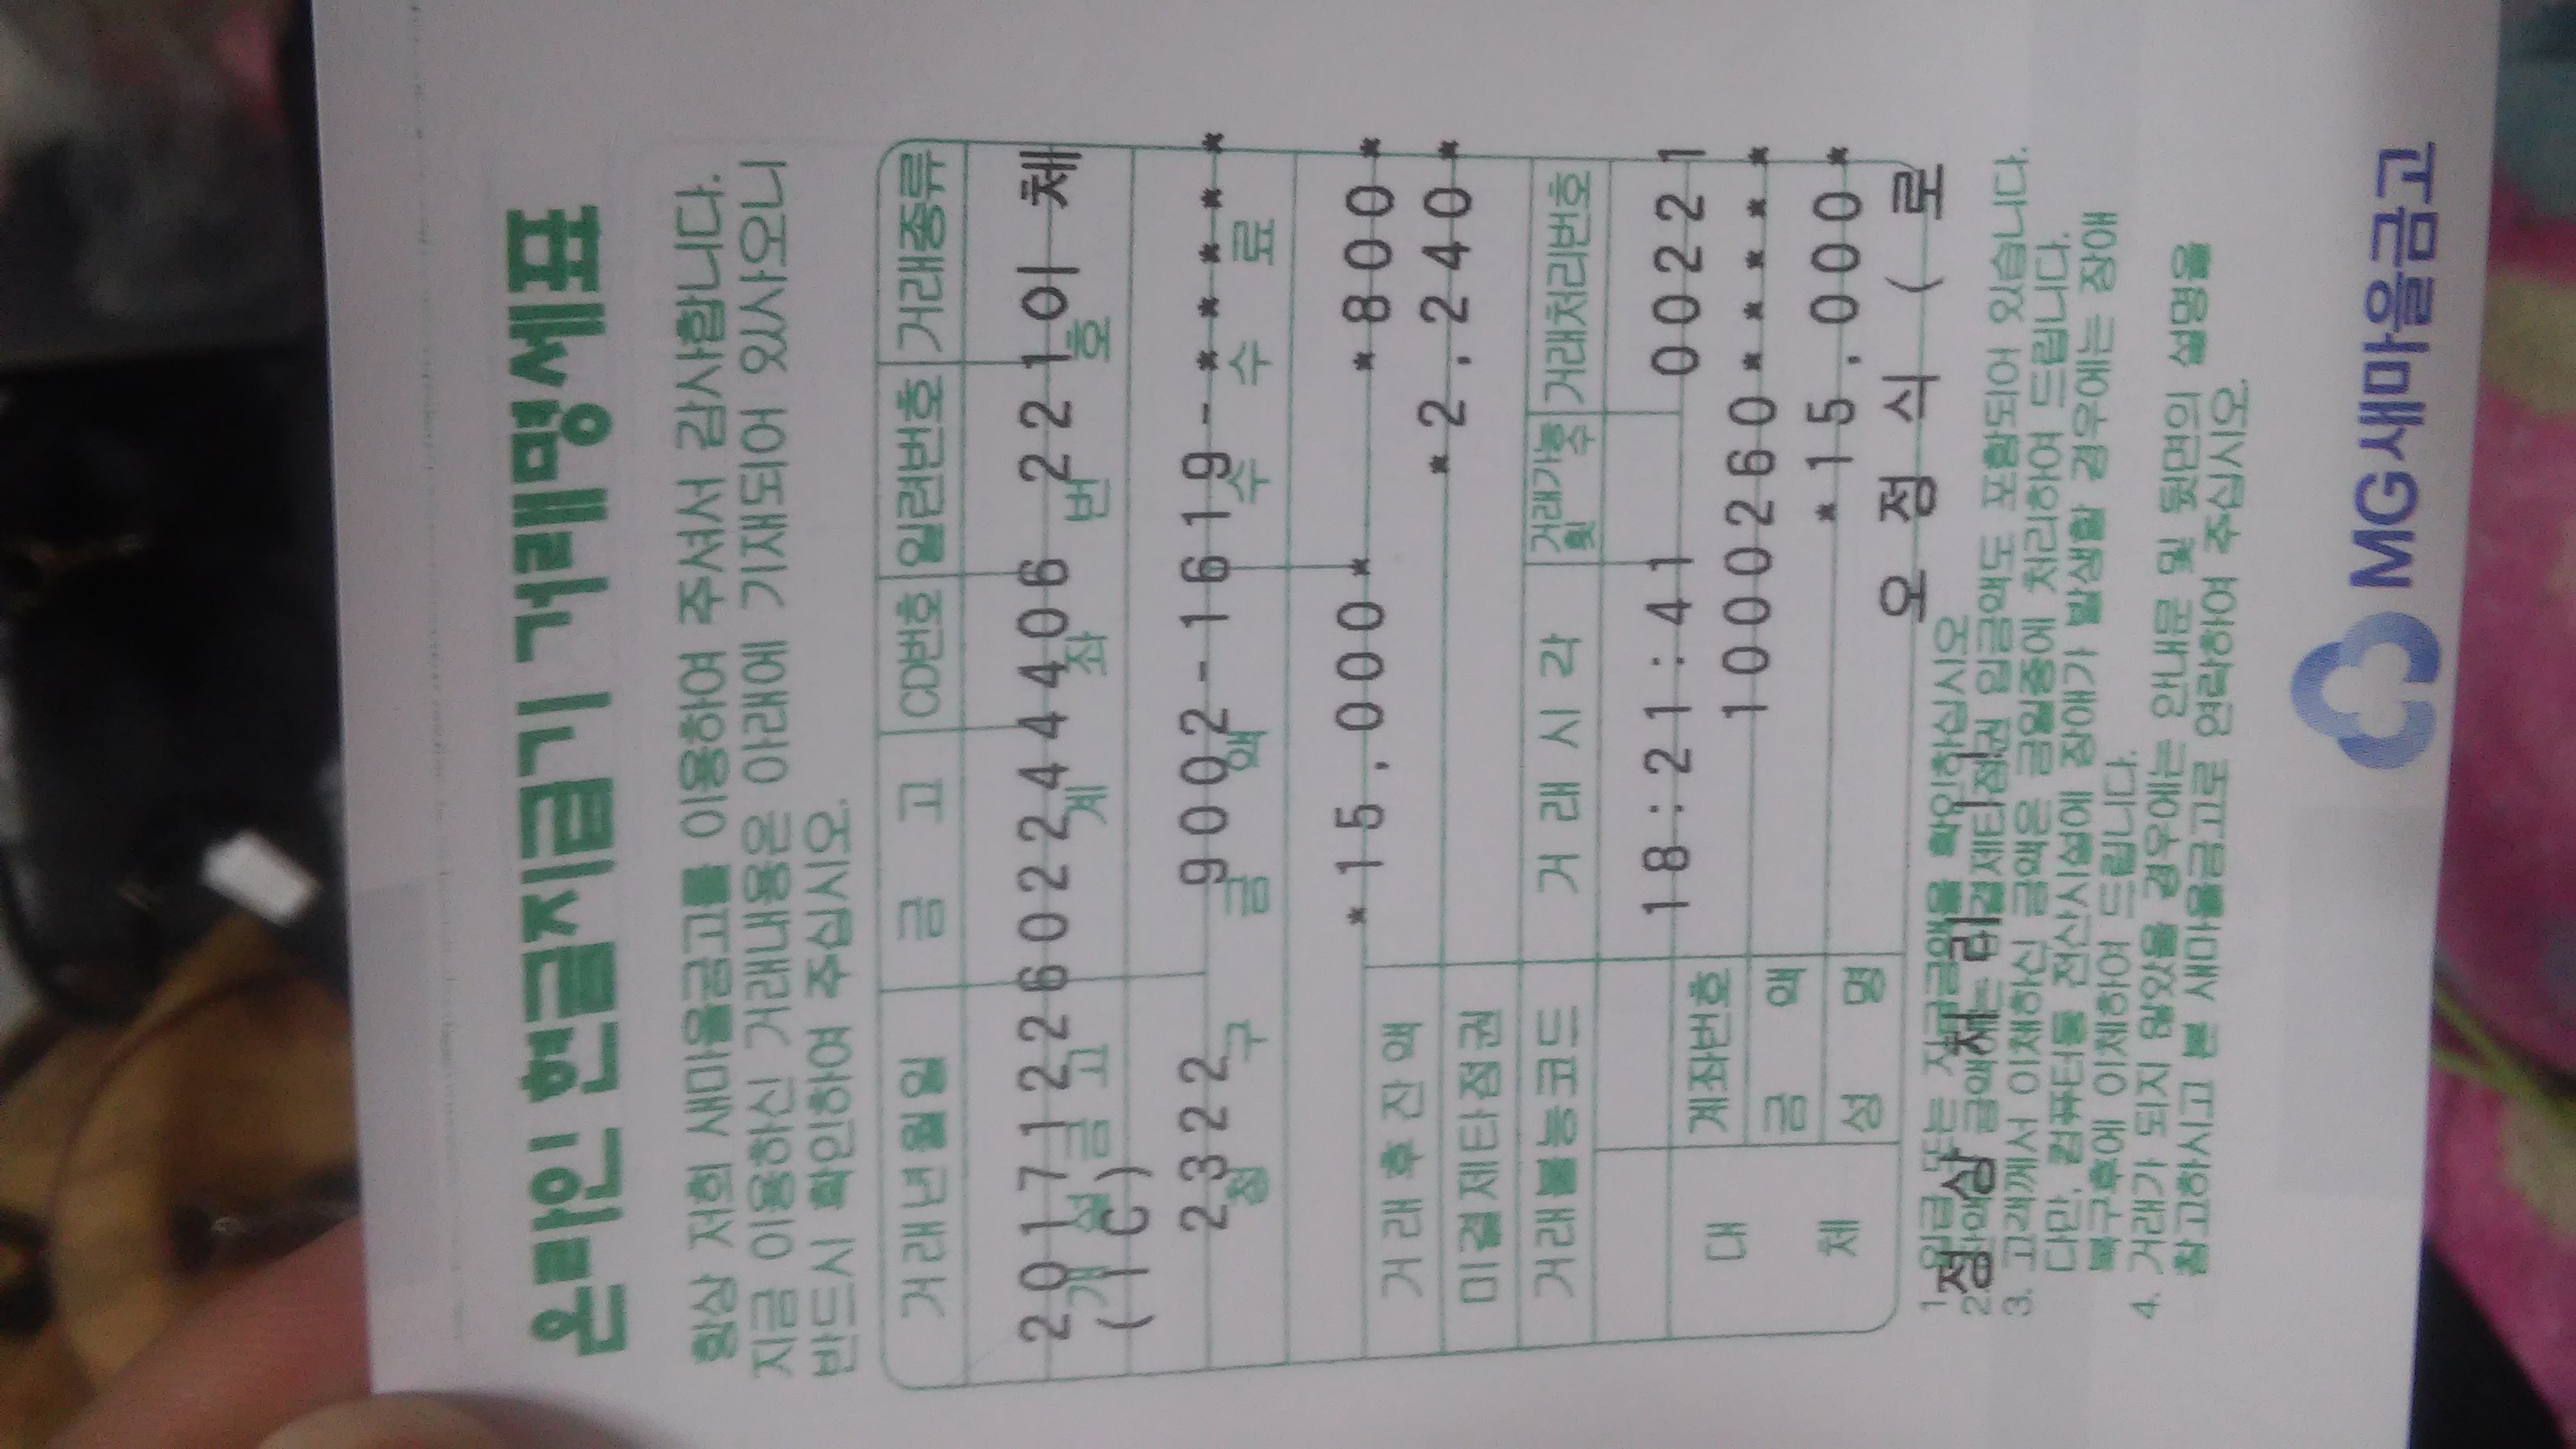 온라인 현금지급기 거래명세표
항상 저희 새마을금고를 이용하여 주셔서 감사합니다.
지금 이용하신 거래내용은 아래에 기재되어 있사오니
반드시 확인하여 주십시오.
거래년월일 금 고 CD번호 일련번호 거래종류
20171226022444406 2210이 체
개 설 금 고 계 좌 번 호
(IC)
2322 9002-1619-*****
청 구 금 액 수 수 료
*15,000* *800*
거래후잔액 *2,240*
미결제타점권
거래불능코드 거 래 시 각 거래가능 및 거래처리번호
18:21:41 00221
대 체 계좌번호 1000260*****
금 액 *15,000*
성 명 오 정 식 ( 로
정상 처리
3. 고객께서 이체하신 금액은 금일중에 처리하여 드립니다.
다만, 컴퓨터등 전산시설에 장애가 발생할 경우에는 장애
복구후에 이체하여 드립니다.
4. 거래가 되지 않았을 경우에는 안내문 및 뒷면의 설명을
참고하시고 본 새마을금고로 연락하여 주십시오.
MG새마을금고